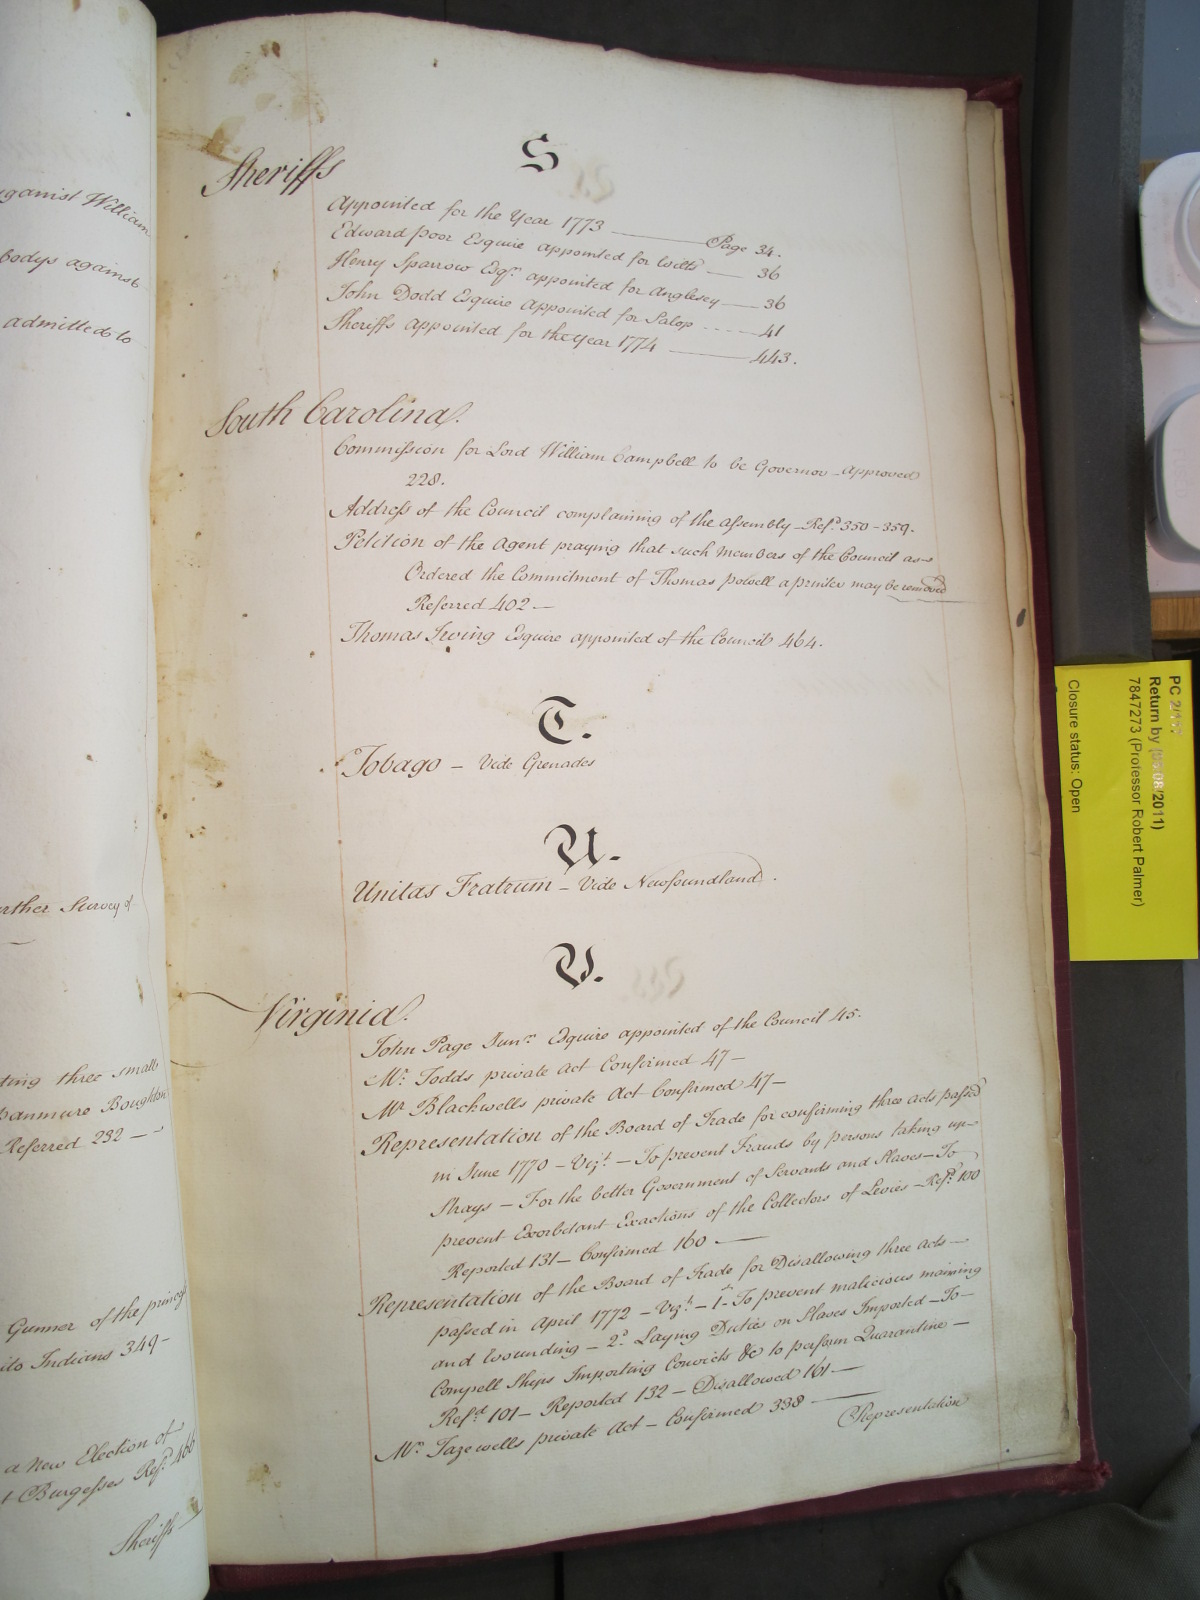 against William
bodys against
admitted to
rther Survey of
ting three small
panmure Boughton
Referred 232 —
Gunner of the princess
ito Indians 349 -
a New Election of
Burgesses Ref.d 466
Sheriffs
S
Sheriffs
Appointed for the Year 1773 ——— Page 34.
Edward Poor Esquire appointed for Wilts — 36
Henry Sparrow Esq.r appointed for Anglesey — 36
John Dodd Esquire Appointed for Salop - - - - 41
Sheriffs appointed for the Year 1774 ——— 443.
South Carolina.
Commission for Lord William Campbell to be Governor - Approved
228.
Address of the Council complaining of the Assembly - Ref.d 350 - 359.
Petition of the Agent praying that such Members of the Council as
Ordered the Commitment of Thomas Powell a printer may be removed
Referred 402 —
Thomas Irving Esquire appointed of the Council 464.
T.
Tobago — Vide Grenades
U.
Unitas Fratrum — Vide Newfoundland.
V.
Virginia.
John Page Jun.r Esquire appointed of the Council 45.
Mr. Todds private Act Confirmed 47 —
Mr. Blackwells private Act Confirmed 47 —
Representation of the Board of Trade for confirming three Acts passed
in June 1770 — Vizt. — To prevent Frauds by persons taking up
Strays — For the better Government of Servants and Slaves — To
prevent Exorbitant Exactions of the Collectors of Levies — Ref.d 100
Reported 131 — Confirmed 160 . ——
Representation of the Board of Trade for Disallowing three Acts —
passed in April 1772 — Vizt. — 1. To prevent malicious maiming
and Wounding — 2.d Laying Duties on Slaves Imported — To
Compell Ships Importing Convicts &c to perform Quarantine —
Ref.d 101 — Reported 132 — Disallowed 161 —
Mr. Tazewells private Act — Confirmed 338 ———
Representation
PC 2/117
Return by (05/08/2011)
7847273 (Professor Robert Palmer)
Closure status: Open